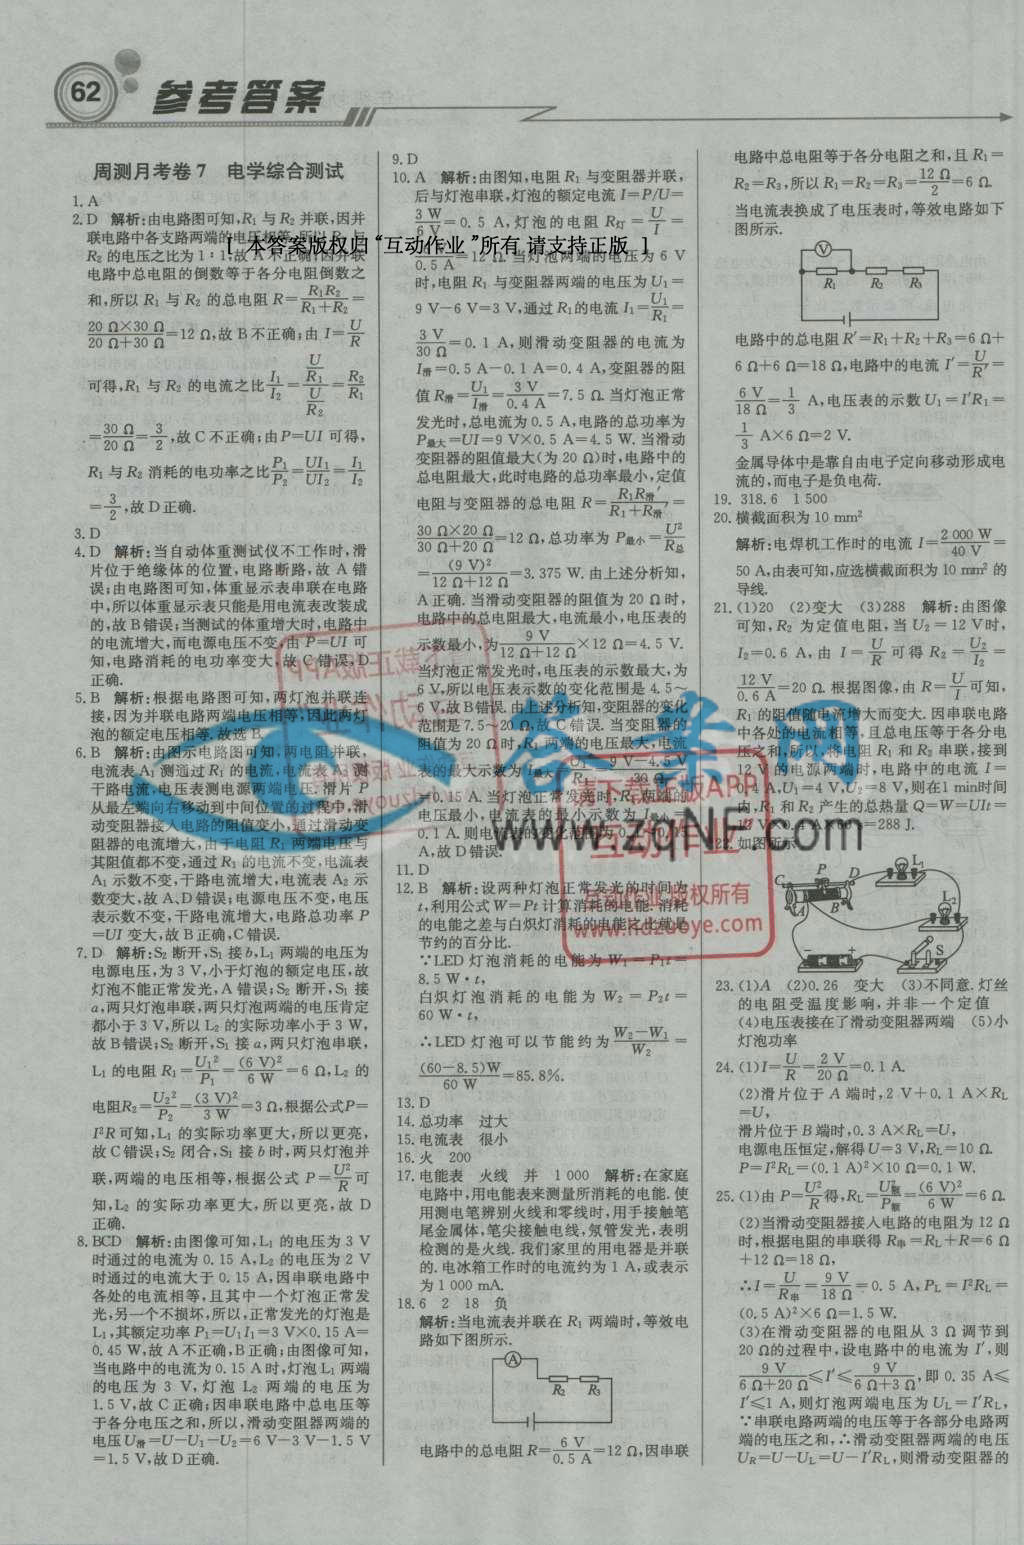 62
参考答案
周测月考卷7 电学综合测试
1. A
2. D 解析:由电路图可知,R₁ 与 R₂ 并联,因并
联电路中各支路两端的电压相等,所以 R₁ 与
R₂ 的电压之比为 1∶1,故 A 不正确;因并联
电路中总电阻的倒数等于各分电阻倒数之
和,所以 R₁ 与 R₂ 的总电阻 R=R₁R₂/(R₁+R₂)=
20 Ω×30 Ω/(20 Ω+30 Ω)=12 Ω,故 B 不正确;由 I=U/R
可得,R₁ 与 R₂ 的电流之比 I₁/I₂=(U/R₁)/(U/R₂)=R₂/R₁
=30 Ω/20 Ω=3/2,故 C 不正确;由 P=UI 可得,
R₁ 与 R₂ 消耗的电功率之比 P₁/P₂=UI₁/UI₂=I₁/I₂
=3/2,故 D 正确.
3. D
4. D 解析:当自动体重测试仪不工作时,滑
片位于绝缘体的位置,电路断路,故 A 错
误;由电路图可知,体重显示表串联在电路
中,所以体重显示表只能是用电流表改装成
的,故 B 错误;当测试的体重增大时,电路中
的电流增大,而电源电压不变,由 P=UI 可
知,电路消耗的电功率变大,故 C 错误,D
正确.
5. B 解析:根据电路图可知,两灯泡并联连
接,因为并联电路两端电压相等,因此两灯
泡的额定电压相等.故选 B.
6. B 解析:由图示电路图可知,两电阻并联,
电流表 A₁ 测通过 R₁ 的电流,电流表 A₂ 测
干路电流,电压表测电源两端电压.滑片 P
从最左端向右移动到中间位置的过程中,滑
动变阻器接入电路的阻值变小,通过滑动变
阻器的电流增大,由于电阻 R₁ 两端电压与
其阻值都不变,通过 R₁ 的电流不变,电流表
A₁ 示数不变,干路电流增大,电流表 A₂ 示
数变大,故 A、D 错误;电源电压不变,电压
表示数不变,干路电流增大,电路总功率 P
=UI 变大,故 B 正确,C 错误.
7. D 解析:S₂ 断开,S₁ 接 b,L₁ 两端的电压为
电源电压,为 3 V,小于灯泡的额定电压,故
灯泡不能正常发光,A 错误;S₂ 断开,S₁ 接
a,两只灯泡串联,两只灯泡两端的电压肯定
都小于 3 V,所以 L₂ 的实际功率小于 3 W,
故 B 错误;S₂ 断开,S₁ 接 a,两只灯泡串联,
L₁ 的电阻 R₁=U₁²/P₁=(6 V)²/6 W=6 Ω,L₂ 的
电阻R₂=U₂²/P₂=(3 V)²/3 W=3 Ω,根据公式P=
I²R 可知,L₁ 的实际功率更大,所以更亮,
故 C 错误;S₂ 闭合,S₁ 接 b 时,两只灯泡并
联,两端的电压相等,根据公式 P=U²/R 可
知,L₂ 的实际功率更大,所以更亮,故 D
正确.
8. BCD 解析:由图像可知,L₁ 的电压为 3 V
时通过的电流为 0.15 A,L₂ 的电压为 2 V
时通过的电流大于 0.15 A,因串联电路中
各处的电流相等,且其中一个灯泡正常发
光,另一个不损坏,所以,正常发光的灯泡是
L₁,其额定功率 P₁=U₁I₁=3 V×0.15 A=
0.45 W,故 A 不正确,B 正确;由图像可知,
当电路中的电流为 0.15 A 时,灯泡 L₁ 两端
的电压为 3 V,灯泡 L₂ 两端的电压为
1.5 V,故 C 正确;因串联电路中总电压等
于各分电压之和,所以,滑动变阻器两端的
电压 U滑=U−U₁−U₂=6 V−3 V−1.5 V
=1.5 V,故 D 正确.
9. D
10. A 解析:由图知,电阻 R₁ 与变阻器并联,
后与灯泡串联,灯泡的额定电流 I=P/U=
3 W/6 V=0.5 A,灯泡的电阻 R灯=U/I=
6 V/0.5 A=12 Ω.当灯泡两端的电压为 6 V
时,电阻 R₁ 与变阻器两端的电压为 U₁=
9 V−6 V=3 V,通过 R₁ 的电流 I₁=U₁/R₁=
3 V/30 Ω=0.1 A,则滑动变阻器的电流为
I滑=0.5 A−0.1 A=0.4 A,变阻器的阻
值 R滑=U₁/I滑=3 V/0.4 A=7.5 Ω.当灯泡正常
发光时,总电流为 0.5 A,电路的总功率为
P最大=UI=9 V×0.5 A=4.5 W.当滑动
变阻器的阻值最大(为 20 Ω)时,电路中的
总电阻最大,此时电路的总功率最小,定值
电阻与变阻器的总电阻 R=R₁R滑′/(R₁+R滑′)=
30 Ω×20 Ω/(30 Ω+20 Ω)=12 Ω,总功率为 P最小=U²/R总
=(9 V)²/(12 Ω+12 Ω)=3.375 W.由上述分析知,
A 正确.当滑动变阻器的阻值为 20 Ω 时,
电路中的总电阻最大,电流最小,电压表的
示数最小,为 9 V/(12 Ω+12 Ω)×12 Ω=4.5 V.
当灯泡正常发光时,电压表的示数最大,为
6 V,所以电压表示数的变化范围是 4.5～
6 V,故 B 错误.由上述分析知,变阻器的变化
范围是 7.5～20 Ω,故 C 错误.当变阻器的
阻值为 20 Ω 时,R₁ 两端的电压最大,电流
表的最大示数为 I最大=U₁/R₁=9 V−4.5 V/30 Ω
=0.15 A.当灯泡正常发光时,R₁ 两端的
电压最小,电流表的最小示数为 I最小=
0.1 A.则电流表的变化范围为 0.1～0.15
A,故 D 错误.
11. D
12. B 解析:设两种灯泡正常发光的时间为
t,利用公式 W=Pt 计算消耗的电能.消耗
的电能之差与白炽灯消耗的电能之比就是
节约的百分比.
∵LED 灯泡消耗的电能为 W₁=P₁t=
8.5 W·t,
白炽灯泡消耗的电能为 W₂=P₂t=
60 W·t,
∴LED 灯泡可以节能约为 (W₂−W₁)/W₂=
(60−8.5)W/60 W=85.8%.
13. D
14. 总功率 过大
15. 电流表 很小
16. 火 200
17. 电能表 火线 并 1 000 解析:在家庭
电路中,用电能表来测量所消耗的电能.使
用测电笔辨别火线和零线时,用手接触笔
尾金属体,笔尖接触电线,氖管发光,表明
检测的是火线.我们家里的用电器是并联
的.电冰箱工作时的电流约为 1 A,或表示
为 1 000 mA.
18. 6 2 18 负
解析:当电流表并联在 R₁ 两端时,等效电
路如下图所示.
A
R₂ R₃
电路中的总电阻 R=6 V/0.5 A=12 Ω,因串联
电路中总电阻等于各分电阻之和,且 R₁=
R₂=R₃,所以 R₁=R₂=R₃=12 Ω/2=6 Ω.
当电流表换成了电压表时,等效电路如下
图所示.
V
R₁ R₂ R₃
电路中的总电阻 R′=R₁+R₂+R₃=6 Ω+
6 Ω+6 Ω=18 Ω,电路中的电流 I′=U/R′=
6 V/18 Ω=1/3 A,电压表的示数 U₁=I′R₁=
1/3 A×6 Ω=2 V.
金属导体中是靠自由电子定向移动形成电
流的,而电子是负电荷.
19. 318.6 1 500
20. 横截面积为 10 mm²
解析:电焊机工作时的电流 I=2 000 W/40 V=
50 A,由表可知,应选横截面积为 10 mm² 的
导线.
21. (1)20 (2)变大 (3)288 解析:由图像
可知,R₂ 为定值电阻,当 U₂=12 V 时,
I₂=0.6 A,由 I=U/R 可得 R₂=U₂/I₂=
12 V/0.6 A=20 Ω.根据图像,由 R=U/I 可知,
R₁ 的阻值随电流增大而变大.因串联电路
中各处的电流相等,且总电压等于各分电
压之和,所以,将电阻 R₁ 和 R₂ 串联,接到
12 V 的电源两端时,电路中的电流 I=
0.4 A,U₁=4 V,U₂=8 V,则在 1 min 时间
内,R₁ 和 R₂ 产生的总热量 Q=W=UIt=
12 V×0.4 A×60 s=288 J.
22. 如图所示
C P D L₁
A B L₂
S
23. (1)A (2)0.26 变大 (3)不同意.灯丝
的电阻受温度影响,并非一个定值
(4)电压表接在了滑动变阻器两端 (5)小
灯泡功率
24. (1)I=U/R=2 V/20 Ω=0.1 A.
(2)滑片位于 A 端时,2 V+0.1 A×R_L
=U,
滑片位于 B 端时,0.3 A×R_L=U,
电源电压恒定,解得 U=3 V,R_L=10 Ω.
P=I²R_L=(0.1 A)²×10 Ω=0.1 W.
25. (1)由 P=U²/R 得,R_L=U额²/P额=(6 V)²/6 W=6 Ω.
(2)当滑动变阻器接入电路的电阻为 12 Ω
时,根据电阻的串联得 R串=R_L+R=6 Ω
+12 Ω=18 Ω,
∴I=U/R串=9 V/18 Ω=0.5 A,P_L=I²R_L=
(0.5 A)²×6 Ω=1.5 W.
(3)在滑动变阻器的电阻从 3 Ω 调节到
20 Ω的过程中,设电路中的电流为 I′,则
9 V/(6 Ω+20 Ω)≤I′≤9 V/(6 Ω+3 Ω),即 0.35 A≤
I′≤1 A,则灯泡两端电压为 U_L=I′R_L,
∵串联电路两端的电压等于各部分电路两
端的电压之和,∴滑动变阻器两端的电压
U_R=U−U_L=U−I′R_L,则滑动变阻器的
[ 本答案版权归“互动作业”所有,请支持正版 ]
答案网
www.zqNF.com
请下载正版APP
互动作业
互动作业版权所有
www.hdzuoye.com